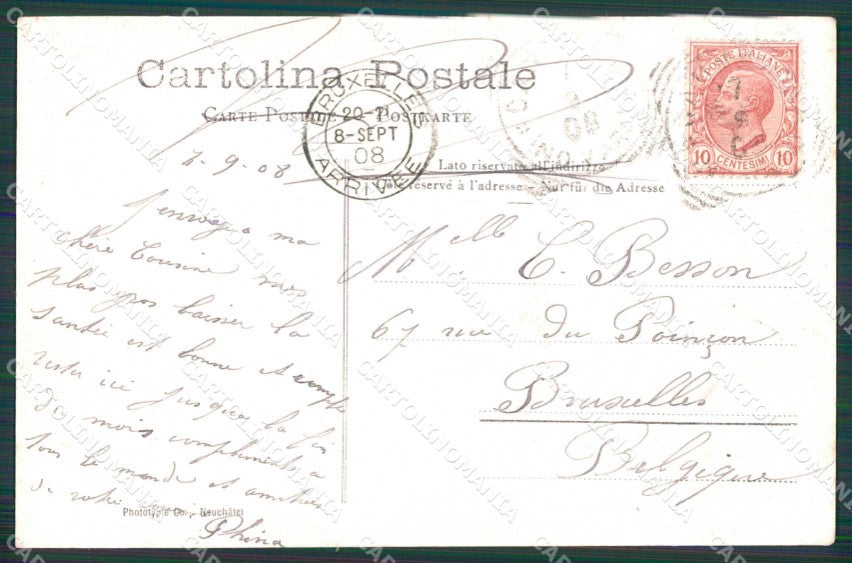 Cartolina Postale
CARTE POSTALE POSTKARTE
Lato riservato all'indirizzo
Côté réservé à l'adresse - Nur für die Adresse
POSTE ITALIANE
10 CENTESIMI 10
BRUXELLES
20-21
8-SEPT
08
ARRIVÉE
08
7-9-08
J'envoie a ma
chère Cousine mes
plus bons baiser la
santée est bonne et compte
rester ici jusqu'a la fin
du mois compliments a
tous le monde et amitiés
de votre
Phina
Mlle C. Besson
67 rue du Poinçon
Bruxelles
Belgique
Phototypie Co., Neuchâtel
CARTOLINOMANIA